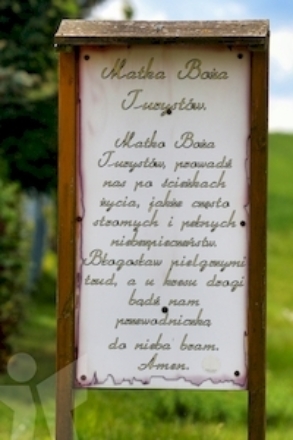 Matka Boża
Turystów.
Matko Boża
Turystów, prowadź
nas po ścieżkach
życia, jakże często
stromych i pełnych
niebezpieczeństw.
Błogosław pielgrzymi
trud, a u kresu drogi
bądź nam
przewodniczką
do nieba bram.
Amen.